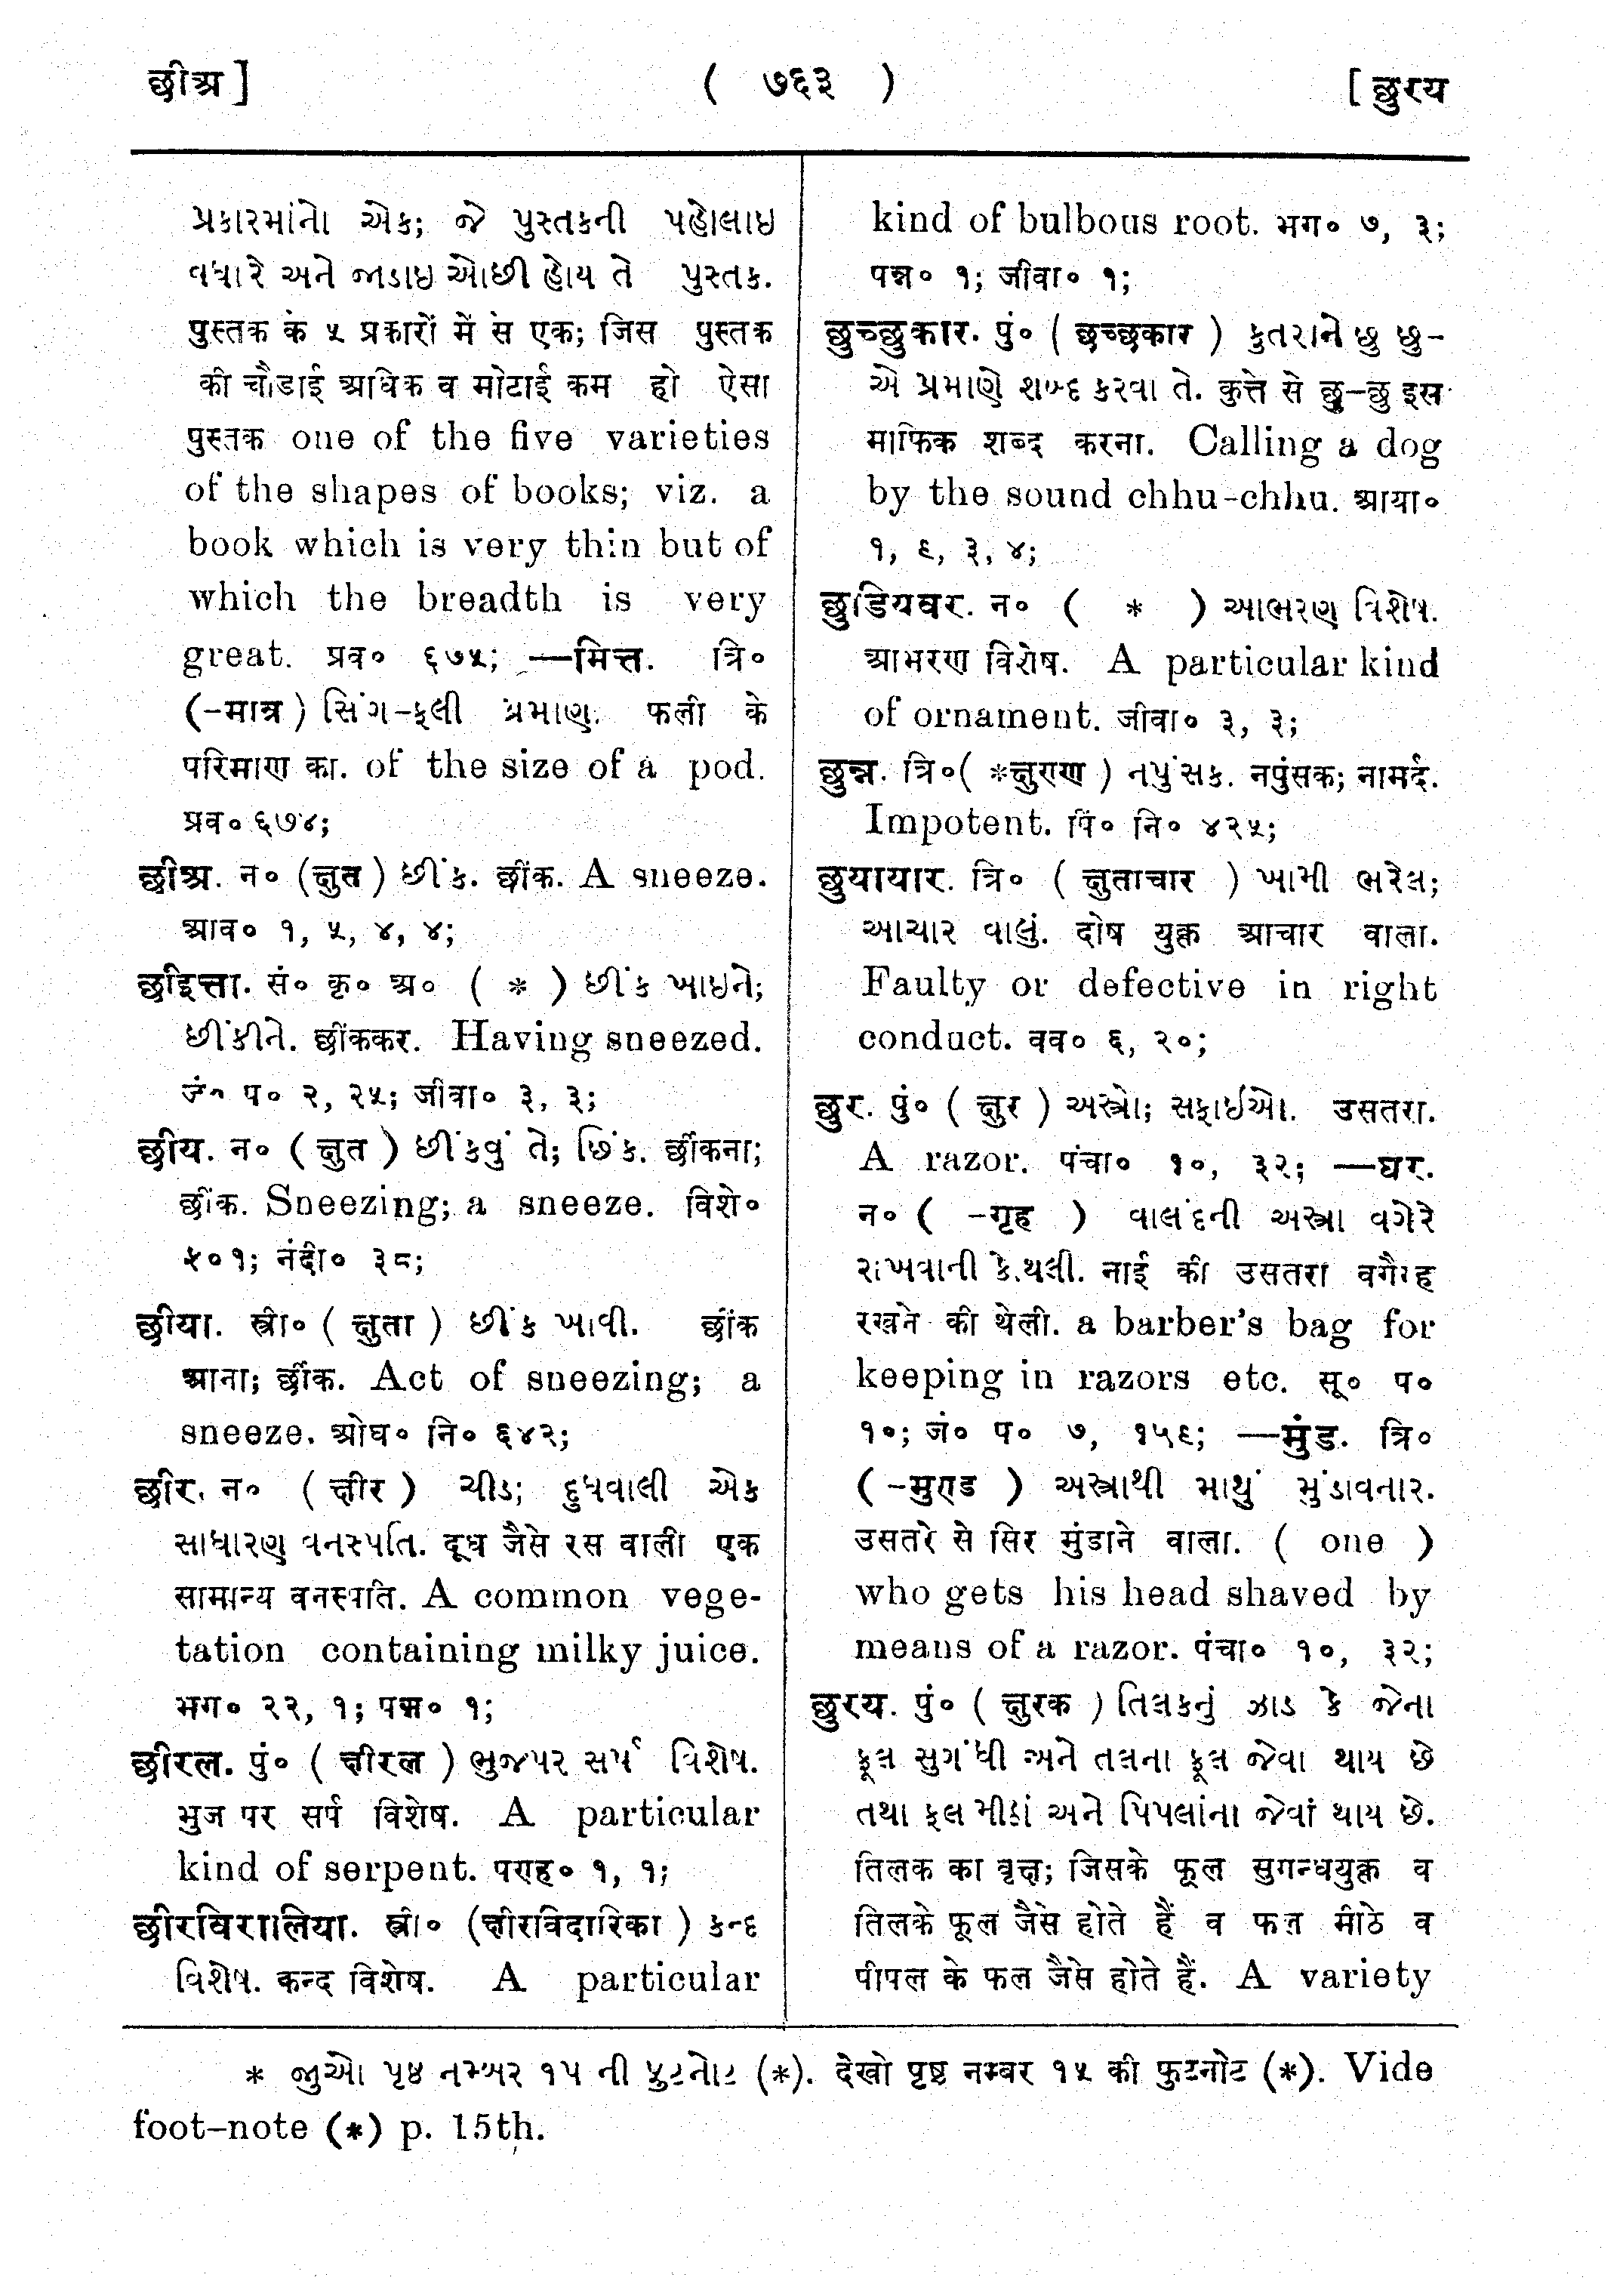 छीअ ]
( ७६३ )
[ छुरय
પ્રકારમાંનો એક; જે પુસ્તકની પહોલાઇ
વધારે અને જાડાઇ ઓછી હોય તે પુસ્તક.
पुस्तक के ५ प्रकारों में से एक; जिस पुस्तक
की चौडाई अधिक व मोटाई कम हो ऐसा
पुस्तक one of the five varieties
of the shapes of books; viz. a
book which is very thin but of
which the breadth is very
great. प्रव० ६७५; —मित्त. त्रि०
(-मात्र) સિંગ-ફલી પ્રમાણ. फली के
परिमाण का. of the size of a pod.
प्रव० ६७४;
छीअ. न० (क्षुत) છીંક. छींक. A sneeze.
आव० १, ५, ४, ४;
छीइत्ता. सं० कृ० अ० ( * ) છીંક ખાઇને;
છીંકીને. छींककर. Having sneezed.
जं० प० २, २५; जीवा० ३, ३;
छीय. न० (क्षुत) છીંકવું તે; છિંક. छींकना;
छींक. Sneezing; a sneeze. विशे०
५०१; नंदी० ३८;
छीया. स्त्री० (क्षुता) છીંક ખાવી. छींक
आना; छींक. Act of sneezing; a
sneeze. ओघ० नि० ६४२;
छीर. न० (क्षीर) ચીડ; દુધવાલી એક
સાધારણ વનસ્પતિ. दूध जैसे रस वाली एक
सामान्य वनस्पति. A common vege-
tation containing milky juice.
भग० २२, १; पन्न० १;
छीरल. पुं० (क्षीरल) ભુજપર સર્પ વિશેષ.
भुज पर सर्प विशेष. A particular
kind of serpent. पराह० १, १;
छीरविरालिया. स्त्री० (क्षीरविदारिका) કન્દ
વિશેષ. कन्द विशेष. A particular
kind of bulbous root. भग० ७, ३;
पन्न० १; जीवा० १;
छुच्छुकार. पुं० (छच्छकार) કુતરાને છુ છુ-
એ પ્રમાણે શબ્દ કરવા તે. कुत्ते से छु-छु इस
माफिक शब्द करना. Calling a dog
by the sound chhu-chhu. आया०
१, ९, ३, ४;
छुडियवर. न० ( * ) આભરણ વિશેષ.
आभरण विशेष. A particular kind
of ornament. जीवा० ३, ३;
छुन्न. त्रि० (*क्षुराण) નપુંસક. नपुंसक; नामर्द.
Impotent. पिं० नि० ४२५;
छुयायार. त्रि० (क्षुताचार) ખામી ભરેલ;
આચાર વાલું. दोष युक्त आचार वाला.
Faulty or defective in right
conduct. वव० ६, २०;
छुर. पुं० (क्षुर) અસ્ત્રો; સફાઈઓ. उसतरा.
A razor. पंचा० १०, ३२; —घर.
न० ( -गृह ) વાલંદની અસ્ત્રા વગેરે
રાખવાની કોથલી. नाई की उसतरा वगैरह
रखने की थेली. a barber's bag for
keeping in razors etc. सू० प०
१०; जं० प० ७, १५९; —मुंड. त्रि०
(-मुण्ड) અસ્ત્રાથી માથું મુંડાવનાર.
उसतरे से सिर मुंडाने वाला. ( one )
who gets his head shaved by
means of a razor. पंचा० १०, ३२;
छुरय. पुं० (क्षुरक) તિલકનું ઝાડ કે જેના
ફૂલ સુગંધી અને તલના ફૂલ જેવા થાય છે
તથા ફલ મીઠાં અને પિપલાંના જેવાં થાય છે.
तिलक का वृक्ष; जिसके फूल सुगन्धयुक्त व
तिलके फूल जैसे होते हैं व फल मीठे व
पीपल के फल जैसे होते हैं. A variety
* જુઓ પૃષ્ઠ નમ્બર ૧૫ ની ફુટનોટ (*). देखो पृष्ठ नम्बर १५ की फुटनोट (*). Vide
foot-note (*) p. 15th.